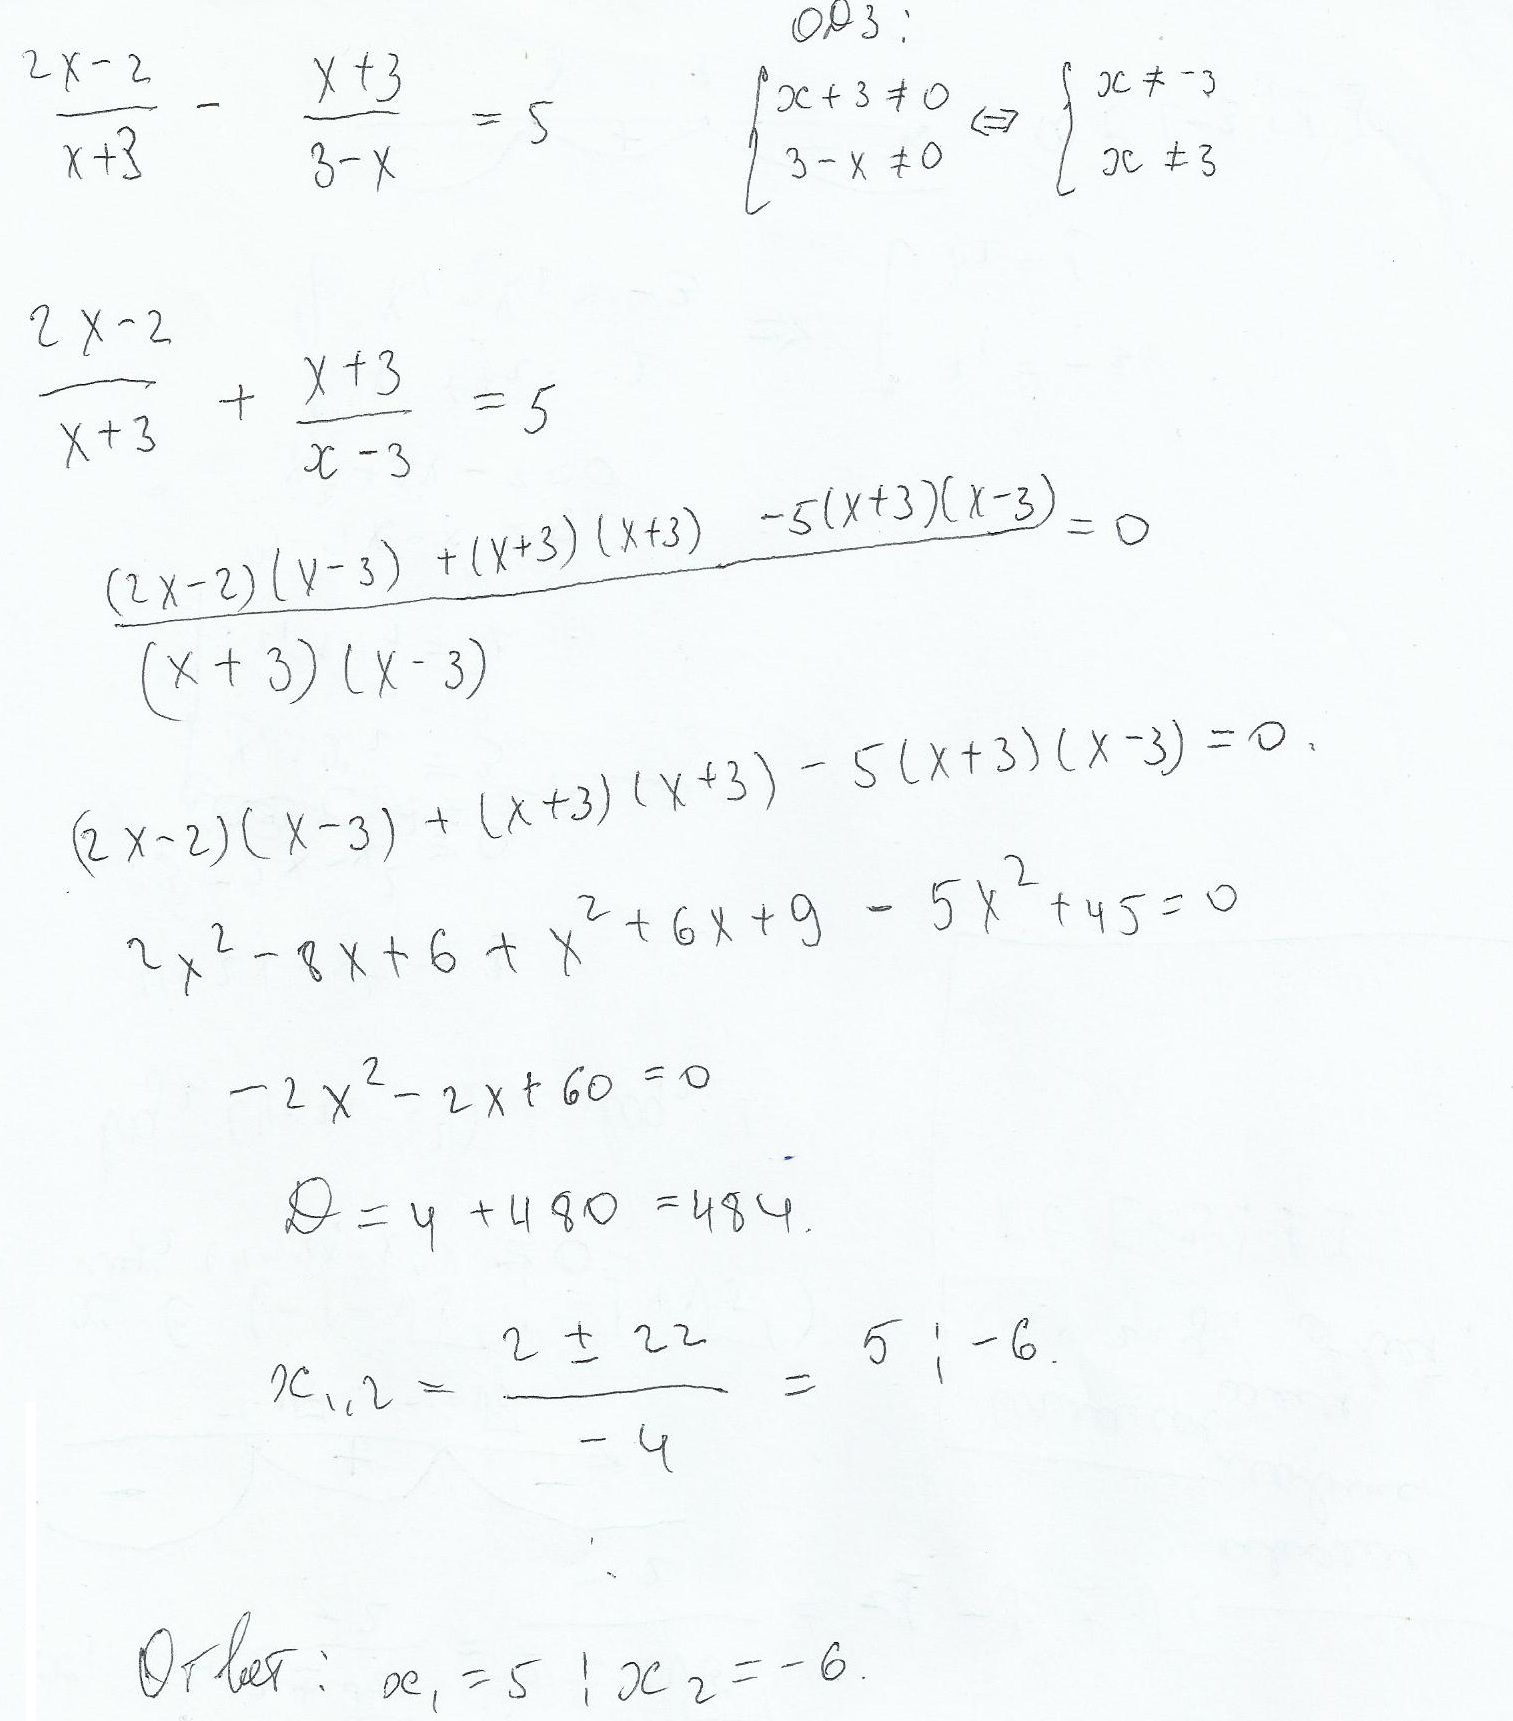 (2x-2)/(x+3) - (x+3)/(3-x) = 5
ОДЗ:
{ x+3 ≠ 0 ⇔ { x ≠ -3
{ 3-x ≠ 0 { x ≠ 3
(2x-2)/(x+3) + (x+3)/(x-3) = 5
((2x-2)(x-3) + (x+3)(x+3) - 5(x+3)(x-3))/((x+3)(x-3)) = 0
(2x-2)(x-3) + (x+3)(x+3) - 5(x+3)(x-3) = 0.
2x² - 8x + 6 + x² + 6x + 9 - 5x² + 45 = 0
-2x² - 2x + 60 = 0
D = 4 + 480 = 484.
x₁,₂ = (2 ± 22)/(-4) = 5 ; -6.
Ответ: x₁ = 5 ; x₂ = -6.